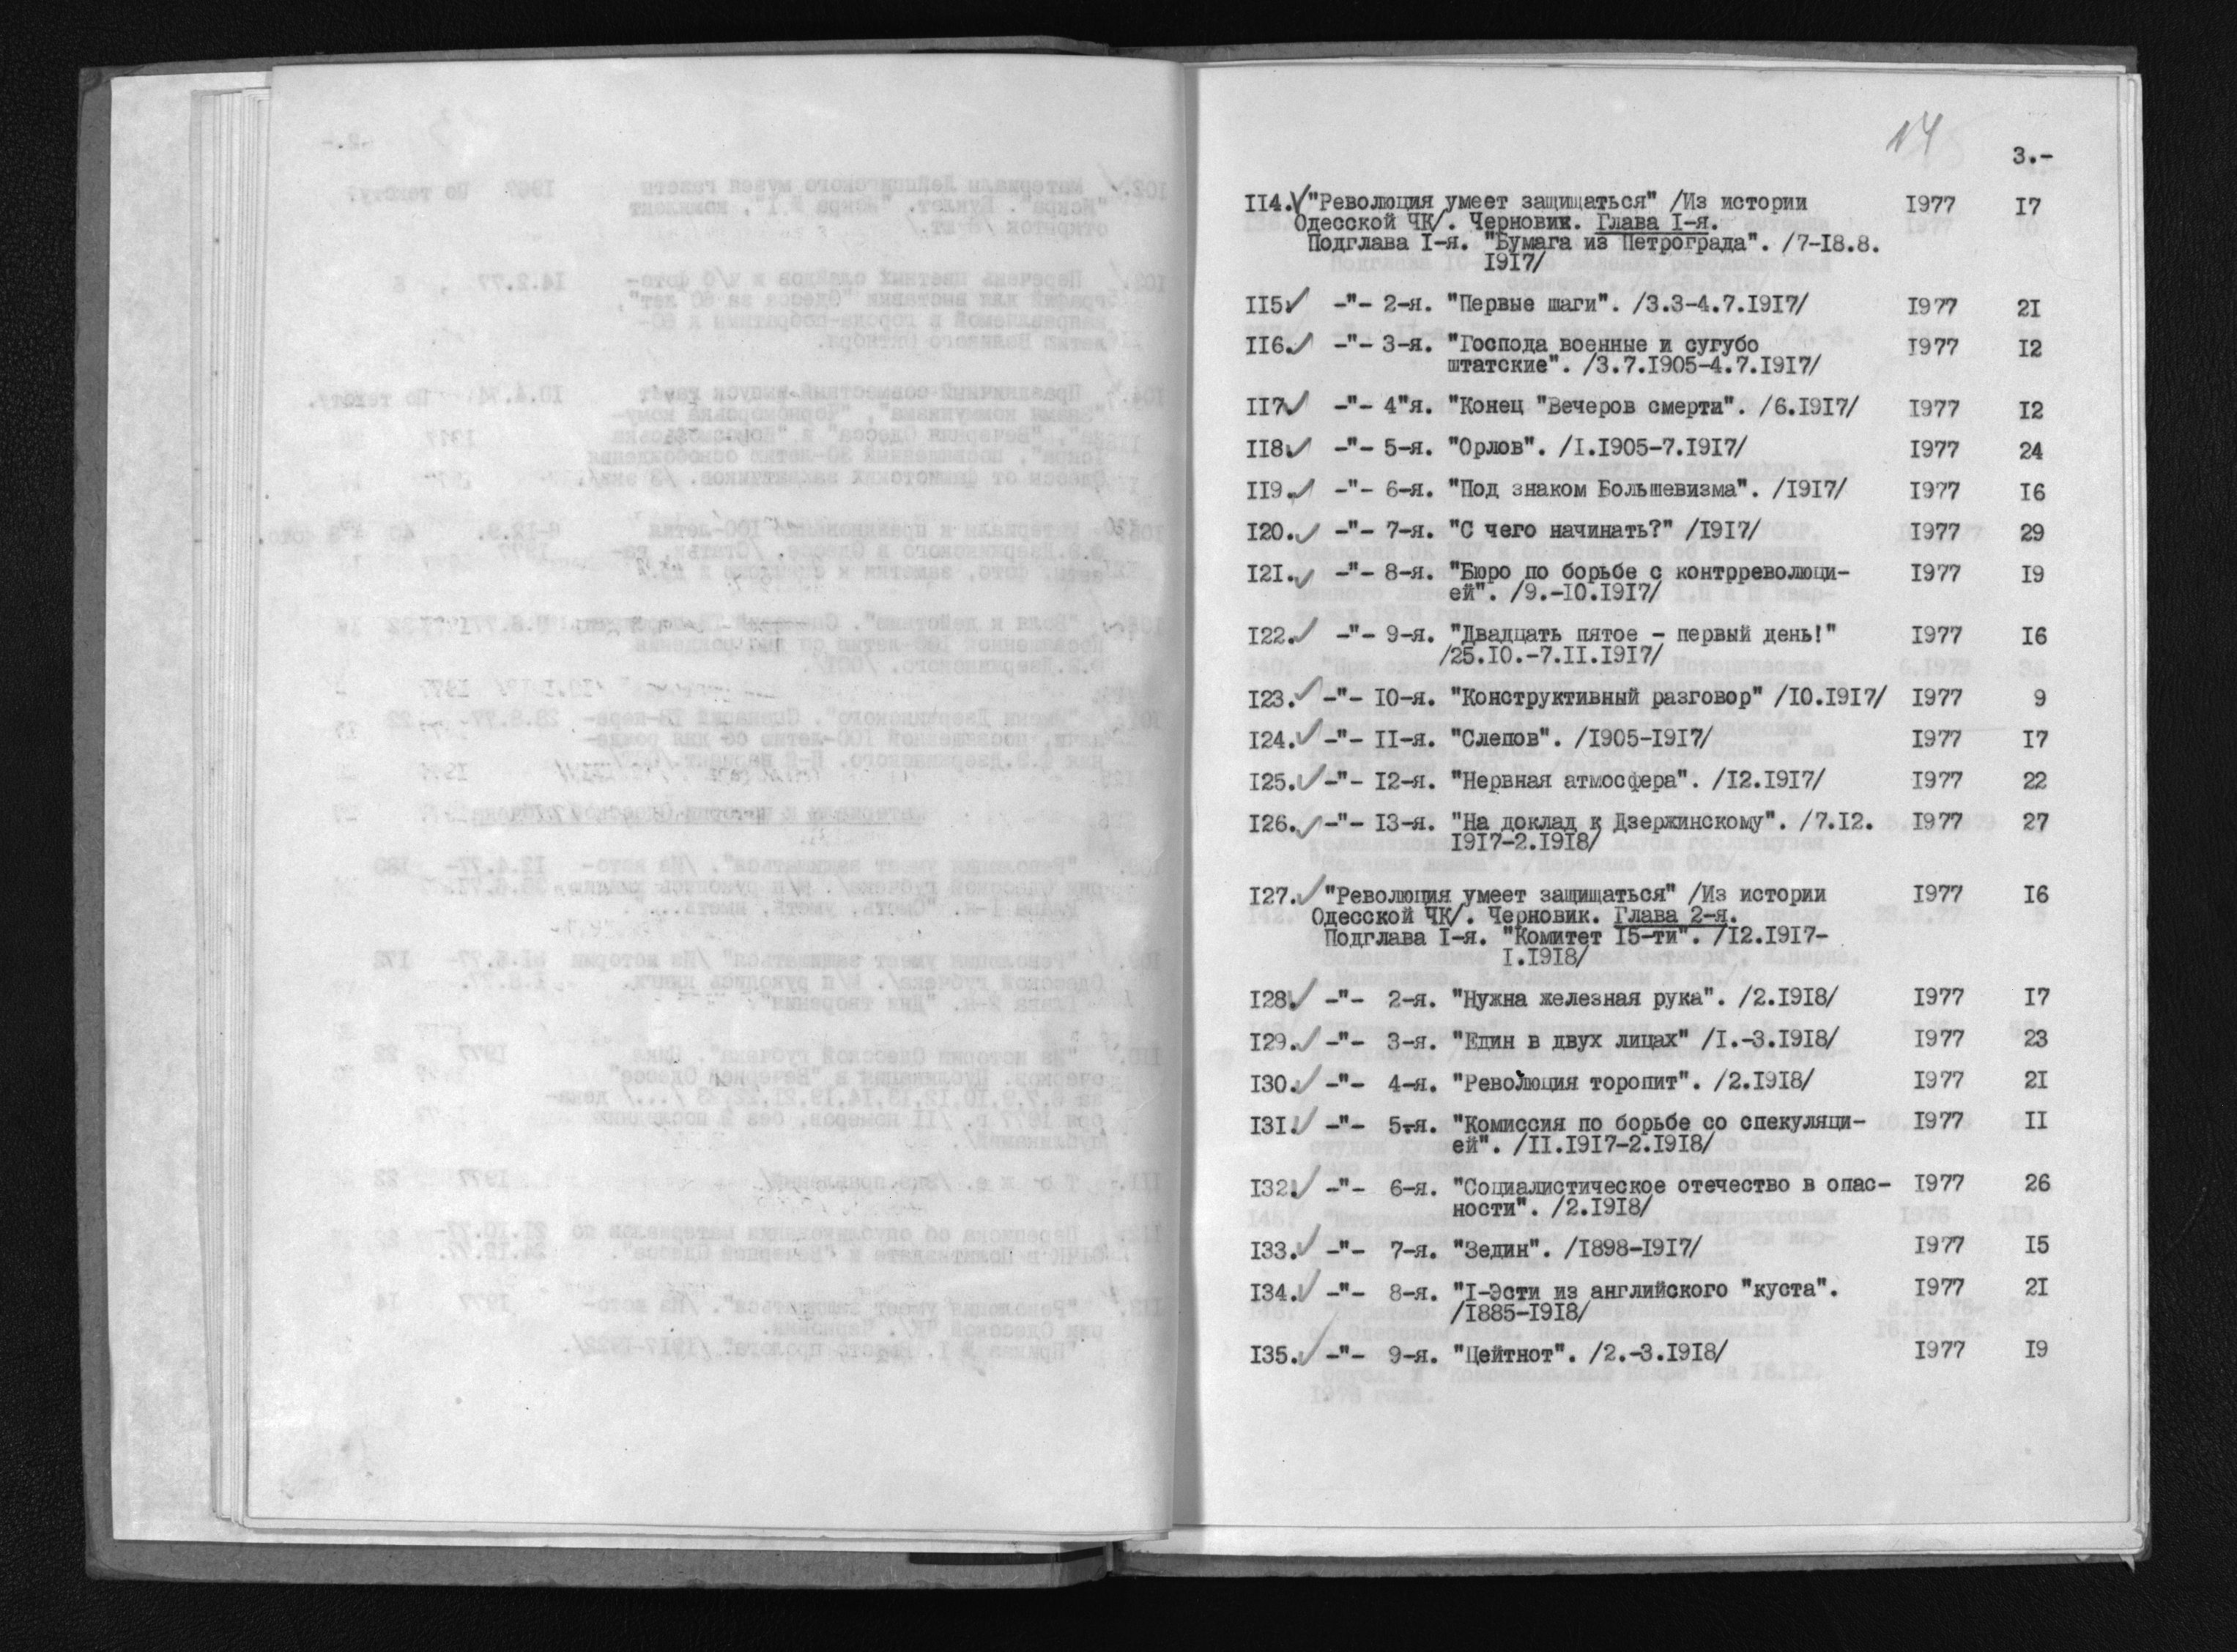 14
3.-
II4. "Революция умеет защищаться" /Из истории I977 I7
Одесской ЧК/. Черновик. Глава I-я.
Подглава I-я. "Бумага из Петрограда". /7-I8.8.
I9I7/
II5. -"- 2-я. "Первые шаги". /3.3-4.7.I9I7/ I977 2I
II6. -"- 3-я. "Господа военные и сугубо I977 I2
штатские". /3.7.I905-4.7.I9I7/
II7. -"- 4"я. "Конец "Вечеров смерти". /6.I9I7/ I977 I2
II8. -"- 5-я. "Орлов". /I.I905-7.I9I7/ I977 24
II9. -"- 6-я. "Под знаком Большевизма". /I9I7/ I977 I6
I20. -"- 7-я. "С чего начинать?" /I9I7/ I977 29
I2I. -"- 8-я. "Бюро по борьбе с контрреволюци- I977 I9
ей". /9.-I0.I9I7/
I22. -"- 9-я. "Двадцать пятое - первый день!" I977 I6
/25.I0.-7.II.I9I7/
I23. -"- I0-я. "Конструктивный разговор" /I0.I9I7/ I977 9
I24. -"- II-я. "Слепов". /I905-I9I7/ I977 I7
I25. -"- I2-я. "Нервная атмосфера". /I2.I9I7/ I977 22
I26. -"- I3-я. "На доклад к Дзержинскому". /7.I2. I977 27
I9I7-2.I9I8/
I27. "Революция умеет защищаться" /Из истории I977 I6
Одесской ЧК/. Черновик. Глава 2-я.
Подглава I-я. "Комитет I5-ти". /I2.I9I7-
I.I9I8/
I28. -"- 2-я. "Нужна железная рука". /2.I9I8/ I977 I7
I29. -"- 3-я. "Един в двух лицах" /I.-3.I9I8/ I977 23
I30. -"- 4-я. "Революция торопит". /2.I9I8/ I977 2I
I3I. -"- 5-я. "Комиссия по борьбе со спекуляци- I977 II
ей". /II.I9I7-2.I9I8/
I32. -"- 6-я. "Социалистическое отечество в опас- I977 26
ности". /2.I9I8/
I33. -"- 7-я. "Зедин". /I898-I9I7/ I977 I5
I34. -"- 8-я. "I-Эсти из английского "куста". I977 2I
/I885-I9I8/
I35. -"- 9-я. "Цейтнот". /2.-3.I9I8/ I977 I9